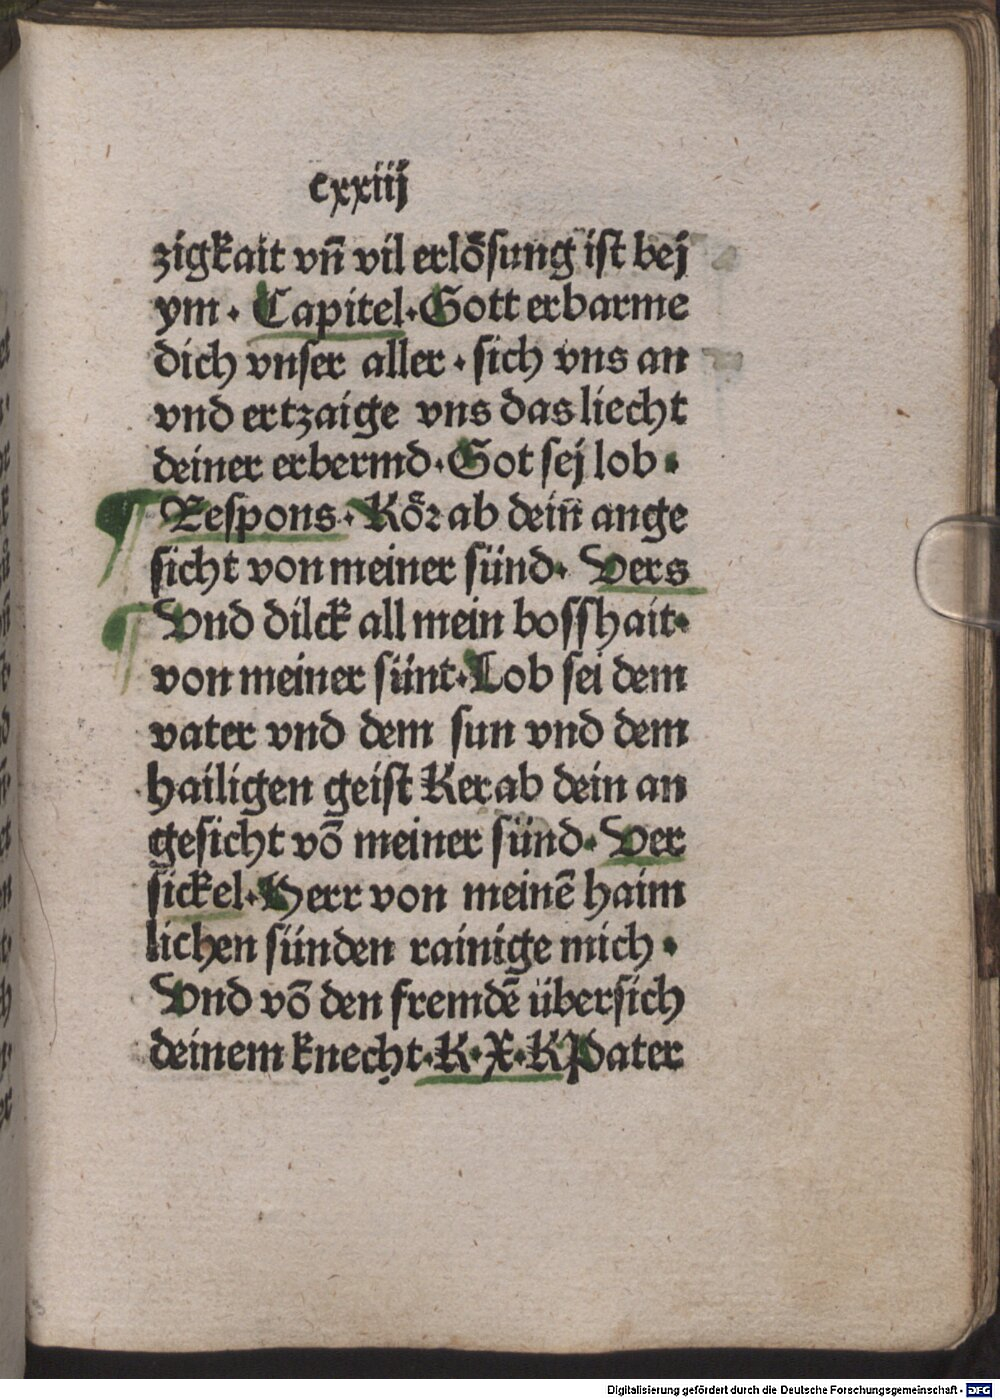 cxxiij
zigkait vñ vil erlösung ist bej
ym · Capitel · Gott erbarme
dich vnser aller · sich vns an
vnd ertzaige vns das liecht
deiner erbermd · Got sej lob ·
Respons · Kör ab dein̄ ange
sicht von meiner sünd · Vers
Vnd dilck all mein bosshait ·
von meiner sünt · Lob sei dem
vater vnd dem sun vnd dem
hailigen geist Ker ab dein an
gesicht vō meiner sünd · Ver
sickel · Herr von meinē haim
lichen sünden rainige mich ·
Vnd vō den fremdē übersich
deinem knecht · K · X · K Pater
Digitalisierung gefördert durch die Deutsche Forschungsgemeinschaft - DFG